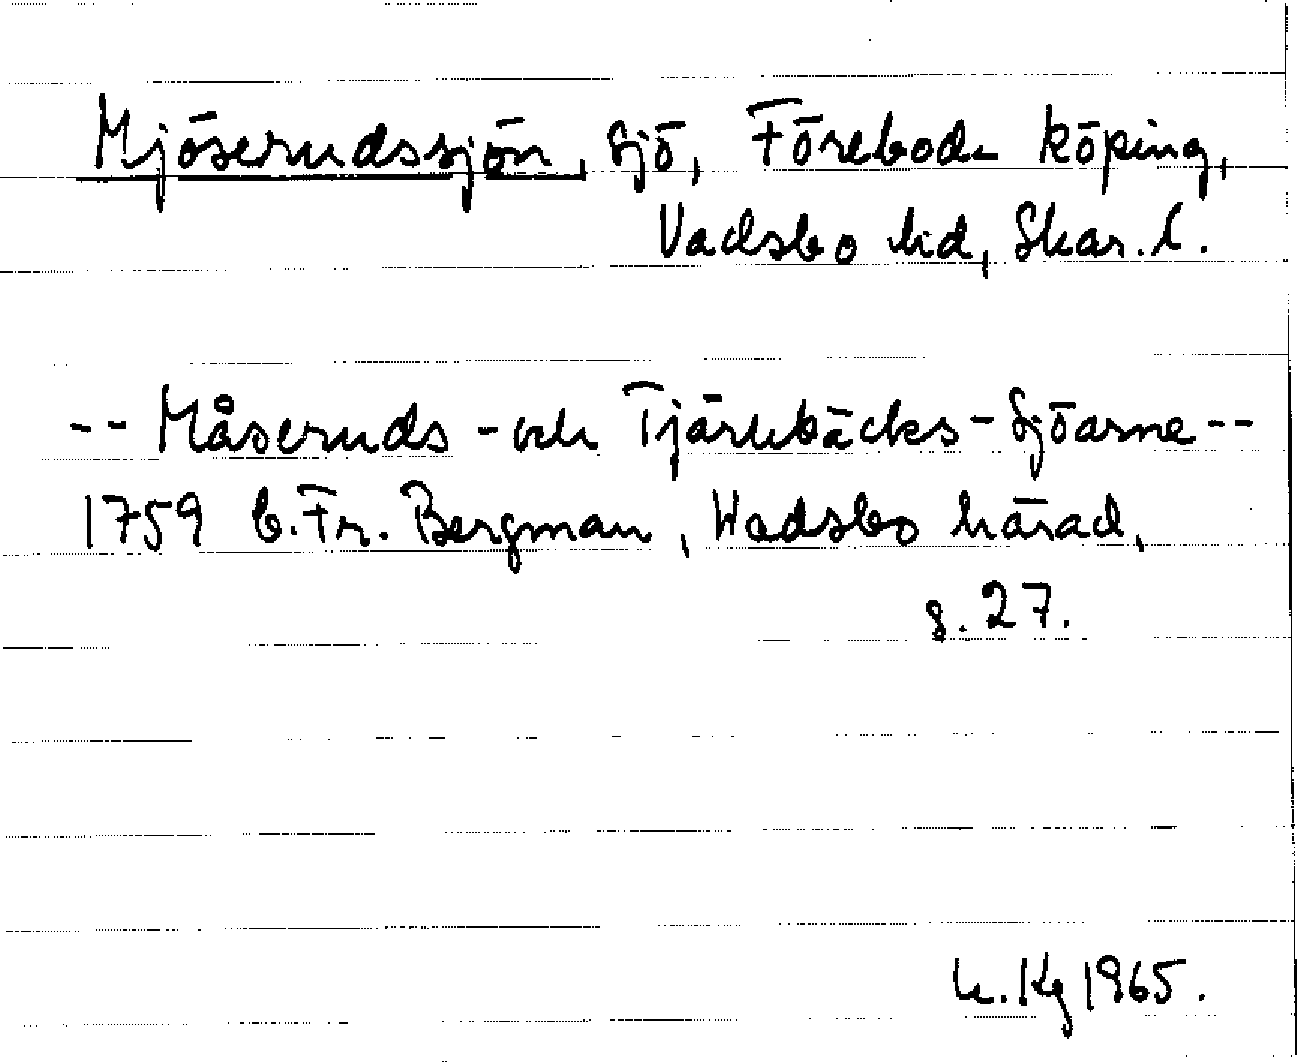 Mjöserudssjön, sjö, Töreboda köping,
Vadsbo hd, Skar. l.
-- Måseruds - och Tjärebäcks - Sjöarne --
1759 C. Fr. Bergman, Wadsbo härad,
s. 27.
Kg 1965.